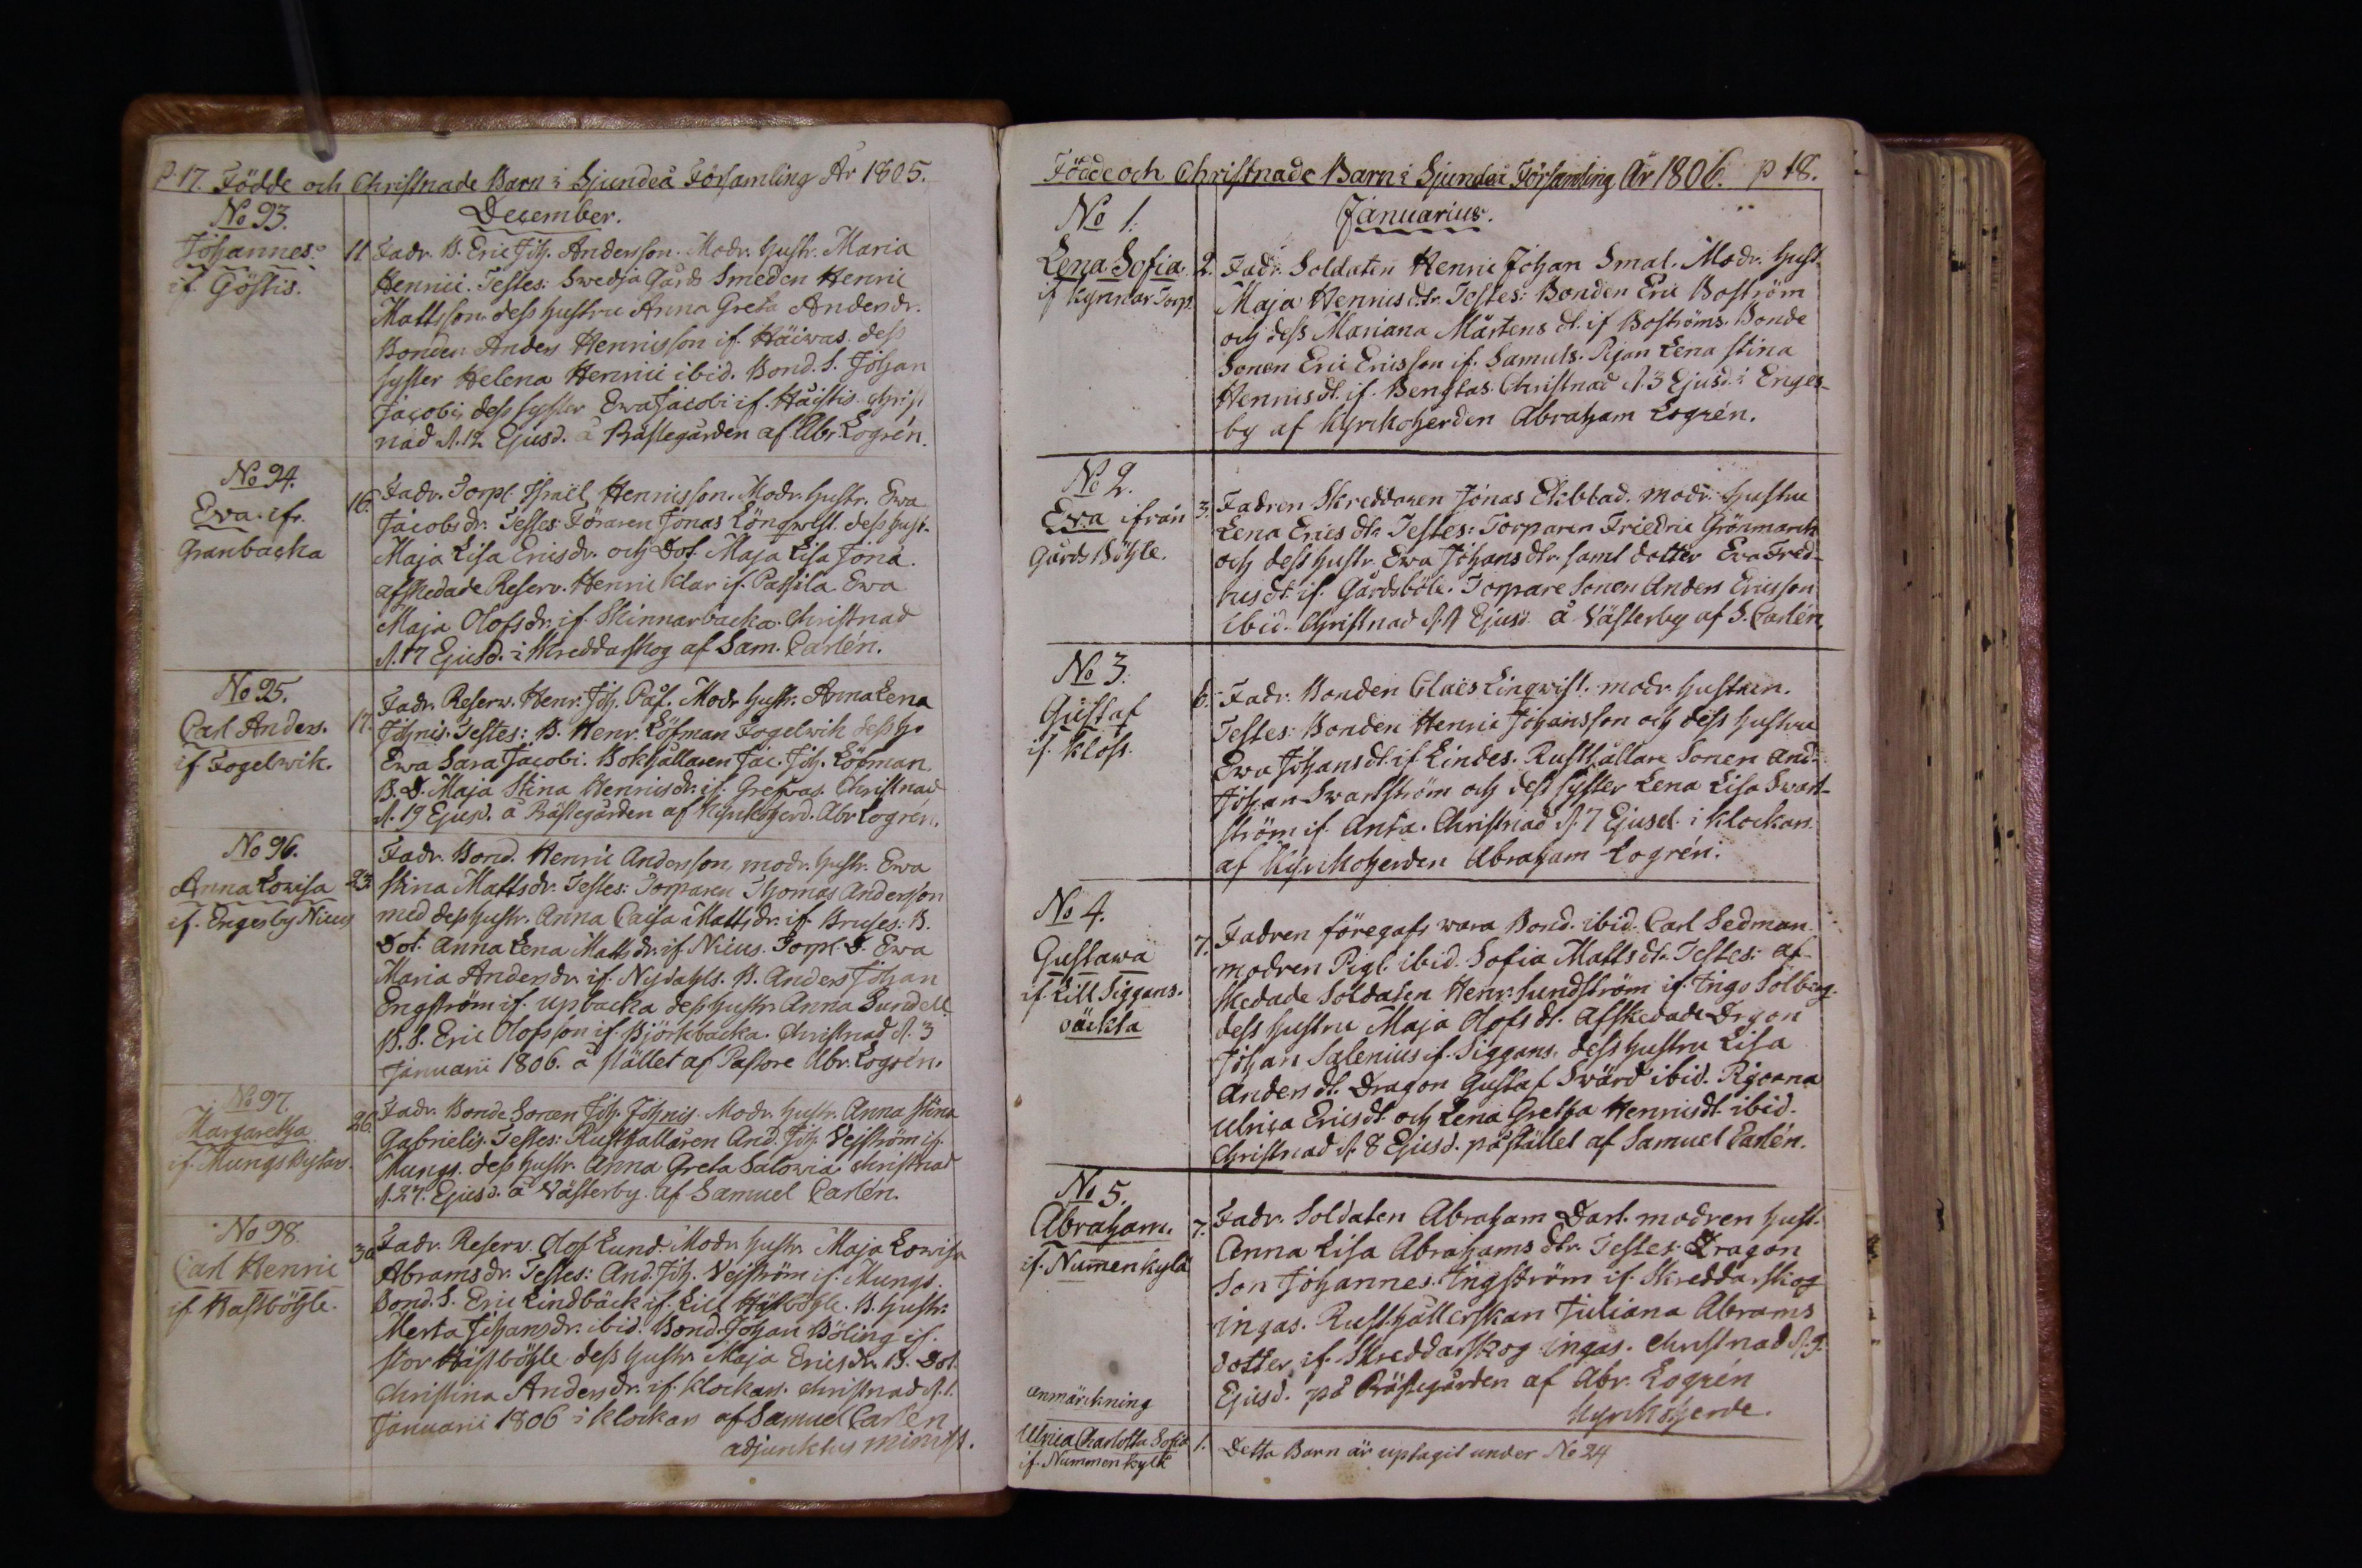 P. 17. Födde och Christnade Barn i Sjundeå Församling År 1805.
December.
No 93.
Johannes.
if. Göstis.
11 Fadr. B. Eric Joh. Andersson. Modr. hustr. Maria
Henrici. Testes: Swedja Gårds Smeden Henric
Mattsson. dess hustru Anna Greta Andersdr.
Bonden Anders Henricsson if. Häiwas. dess
syster Helena Henrici ibid. Bond. S. Johan
Jacobi, dess syster Ewa Jacobi if. Håistis. christ
nad d. 12 Ejusd. å Prästegården af Abr. Logrén.
No 94.
Eva. ifr.
Granbacka
16. Fadr. Torp. Israel Henricsson. Modr. hustr. Ewa
Jacobsdr. Testes: Föraren Jonas Lönqwist. dess hust.
Maja Lisa Ericsdr. och Dot. Maja Lisa Jonæ.
afskedade Reserv. Henric Klar if. Passila. Ewa
Maja Olofsdr. if. Skinnarbacka. Christnad
d. 17 Ejusd. i Skreddarskog af Sam. Carlén.
No 95.
Carl Anders.
if Fogelwik.
17. Fadr. Reserv. Henr. Joh. Pål. Modr hustr. Anna Lena
Johnis. Testes: B. Henr. Löfman Fogelwik dess hu
Ewa Sara Jacobi. Bokhållaren Jac. Joh. Löbman.
B. D. Maja Stina Henricsdr. if. Grefvas. Christnad
d. 19 Ejusd. å Prästegården af Kyrkoherd. Abr Logrén.
No 96.
Anna Lowisa
if. Engesby Nicus
23. Fadr. Bond. Henric Andersson, modr. hustr. Ewa
Stina Mattsdr. Testes: Torparen Thomas Andersson
med dess hustr. Anna Caisa Mattsdr. if. Bruses: B.
Dot. Anna Lena Mattsdr. if. Nicus. Torp. D. Ewa
Maria Andersdr. if. Nydahls. B. Anders Johan
Engström if. upbacka dess hustr. Anna Sundell.
B. S. Eric Olofsson if. Björkbacka. Christnad d. 3
Januarii 1806. å stället af Pastore Abr. Logrén.
No 97.
Margaretha
if. Mungs Kytars.
26. Fadr. Bonde Sonen Joh. Johnis. Modr. hustr. Anna Stina
Gabrielis. Testes: Rusthallaren And. Joh. Vejström if.
Mungs. dess hustr. Anna Greta Salowia. christnad
d. 27. Ejusd. å Västerby. af Samuel Carlén.
No 98.
Carl Henric
if. Hastböhle.
30. Fadr. Reserv. Olof Lund. Modr. hustr. Maja Lowisa
Abramsdr. Testes: And. Joh. Vejström if. Mungs.
Bond. S. Eric Lindbäck if. Lill Hästböhle. B. hustr.
Merta Johansdr. ibid. Bond. Johan Böling if.
stor Hästböhle dess hustr. Maja Ericsdr. B. Dot.
Christina Andersdr. if. klockars. christnad d. 1.
Januarii 1806 i klockars af Samuel Carlén
adjunktus minist.
Födde och Christnade Barn i Sjundeå Församling År 1806. p 18.
Januarius.
No 1.
Lena Sofia
if Kynnar Torp.
2. Fadr. Soldaten Henric Johan Smal. Modr. hust.
Maja Henricsdtr. Testes: Bonden Eric Boström
och dess Mariana Mårtens dt. if Boströms. Bonde
Sonen Eric Ericsson if. Samuls. Pigan Lena Stina
Henricsdt. if. Bengtas. Christnad d. 3 Ejusd. i Enges-
by af Kyrkoherden Abraham Logrén.
No 2.
Eva ifrån
Gårds Böhle.
3. Fadren Skreddaren Jonas Ekblad. modr. hustru
Lena Erics dtr Testes: Torparen Friedric Grönmarck
och dess hustr. Ewa Johans dtr. samt dotter Eva Fred-
rics dt. if. Gårdsböle. Torpare Sonen Anders Ericsson
ibid. Christnad d. 4 Ejusd. å Västerby af S. Carlén.
No 3.
Gustaf
if. Kloss.
6. Fadr. Bonden Claës Linqwist. modr hustrun.
Testes: Bonden Henric Johansson och dess hustru
Ewa Johansdt. if Lindes. Rusthållare Sonen And-
Johan Swartström och dess syster Lena Lisa Swart-
ström if. Anta. Christnad d. 7 Ejusd. i Klockars.
af Kyrkoherden Abraham Logrén.
No 4.
Gustawa
if. Lill Siggans.
7. Fadren föregafs wara Bond. ibid. Carl Sedman.
modren Pig. ibid. Sofia Matts dt. Testes: af-
skedade Soldaten Henr. Sundström if. Ingo Solberg.
dess hustru Maja Olofs dt. Afskedade Drgon
Johan Salenius if. Siggans, dess hustru Lisa
Anders dt. Dragon Gustaf Swärd ibid. Pigorna
Ulrica Ericsdt. och Lena Gretha Henricsdt. ibid.
Christnad d. 8 Ejusd. på stället af Samuel Carlén.
No 5.
Abraham.
if. Numenkylä
7. Fadr. Soldaten Abraham Dart. modren hust.
Anna Lisa Abrahams dtr. Testes: Dragon
Son Johannes Ingström if. Skreddarskog
ingas. Rusthållerskan Juliana Abrams
dotter if. Skreddarskog ingas. christnad d. 9.
Ejusd. på Prästegården af Abr. Logrén
Kyrkoherde.
anmärckning
Ulrica Charlotta Sofia
if. Nummenkylä
1. Detta Barn är uptagit under No 24